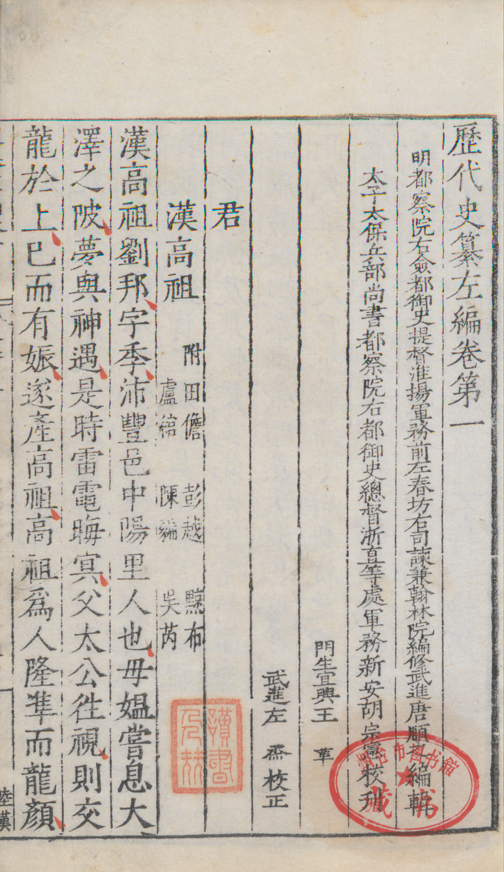 歷代史纂左編卷第一
明都察院右僉都御史提督淮揚軍務前左春坊右司諫兼翰林院編修武進唐順之編輯
太子太保兵部尚書都察院右都御史總督浙直等處軍務新安胡宗憲校刊
門生宜興王革
武進左烝校正
君
漢高祖 附田儋 彭越 黥布
盧綰 陳豨 吳芮
漢高祖劉邦字季沛豐邑中陽里人也母媼嘗息大
澤之陂夢與神遇是時雷電晦冥父太公徃視則交
龍於上巳而有娠遂產高祖高祖爲人隆準而龍顏